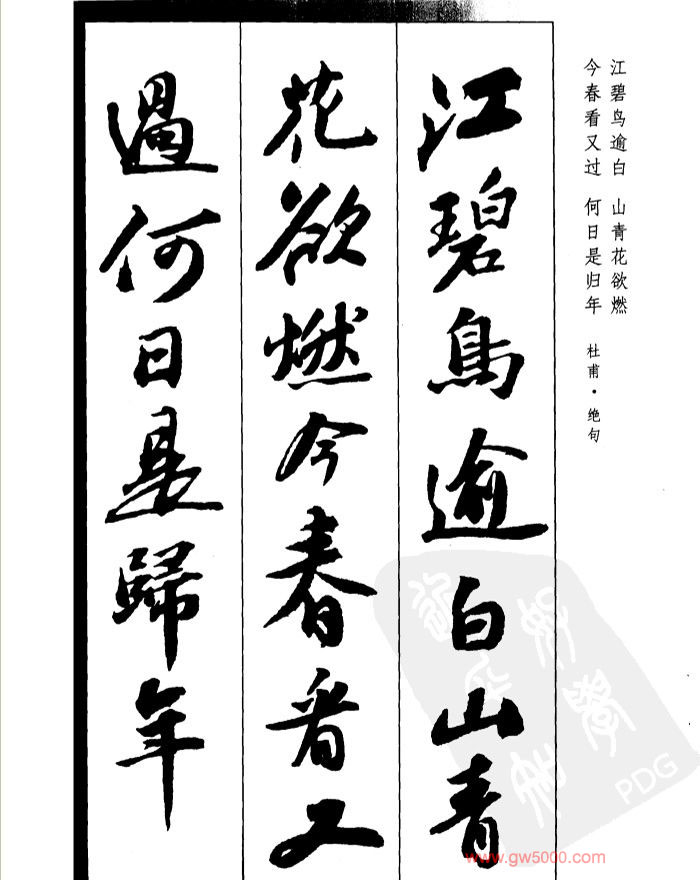 江碧鸟逾白　山青花欲燃
今春看又过　何日是归年
杜甫·绝句
江碧鳥逾白山青
花欲燃今春看又
過何日是歸年
PDG
www.gw5000.com